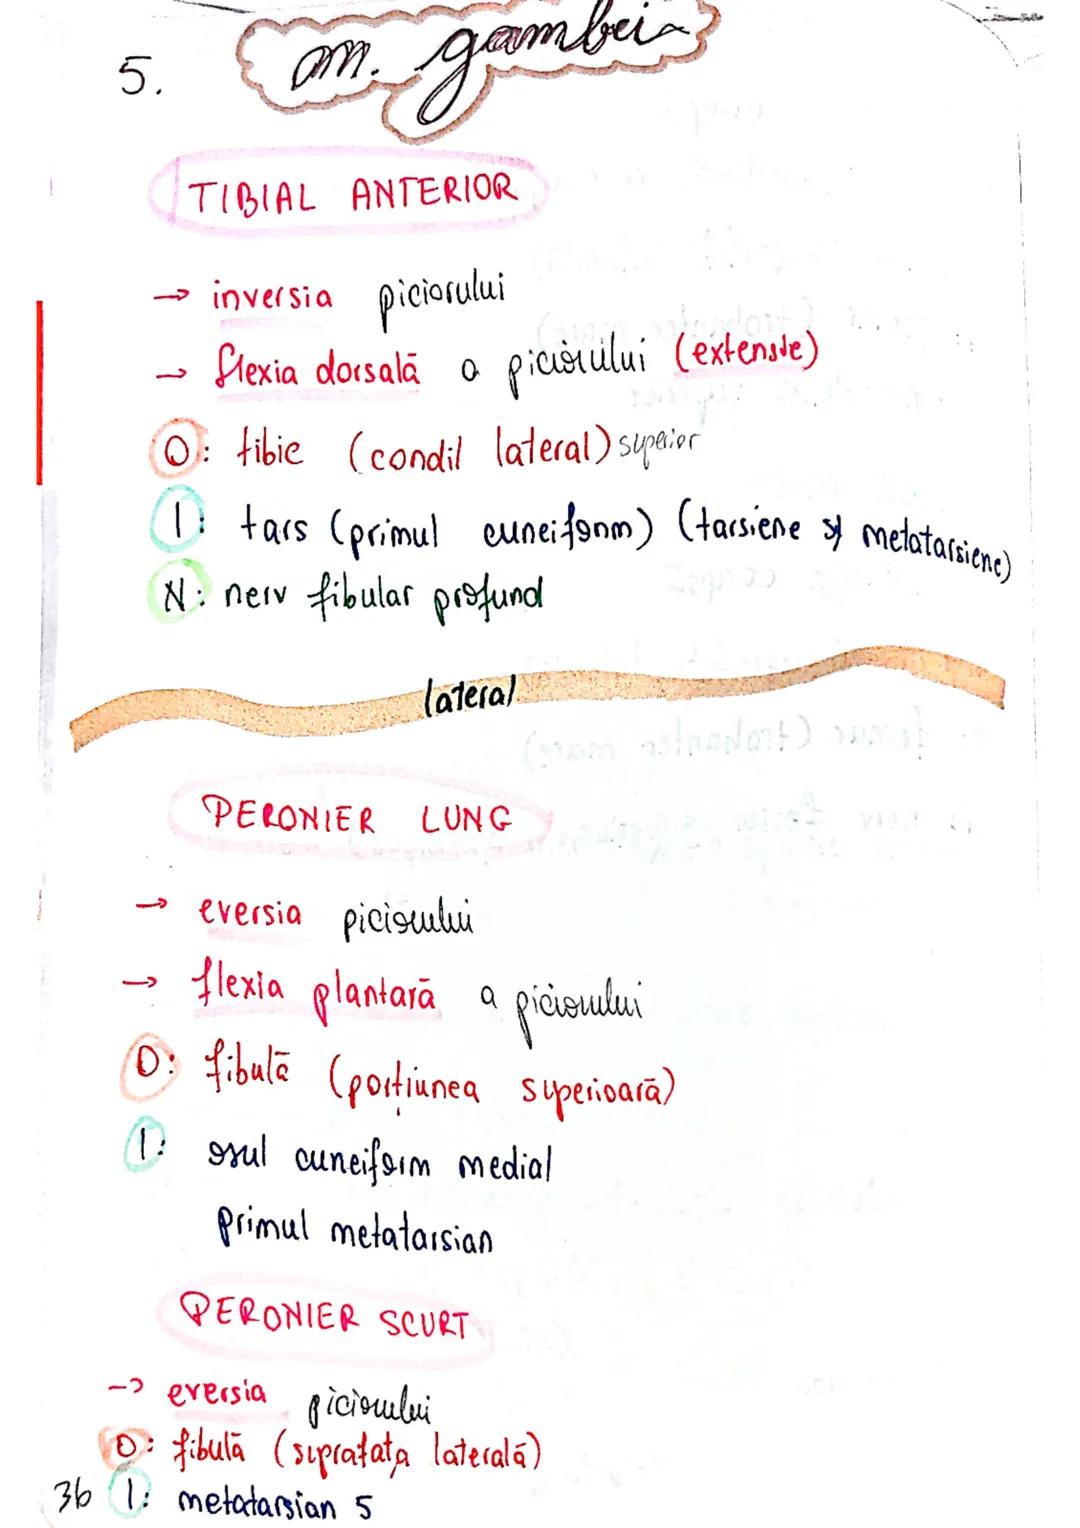 5. m. gambei
TIBIAL ANTERIOR
→ inversia piciorului
→ flexia dorsală a piciorului (extensie)
O: tibie (condil lateral) superior
I: tars (primul cuneiform) (tarsiene și metatarsiene)
N: nerv fibular profund
lateral
PERONIER LUNG
→ eversia piciorului
→ flexia plantară a piciorului
O: fibulă (porțiunea superioară)
I: osul cuneiform medial
primul metatarsian
PERONIER SCURT
→ eversia piciorului
O: fibulă (suprafața laterală)
36 I: metatarsian 5